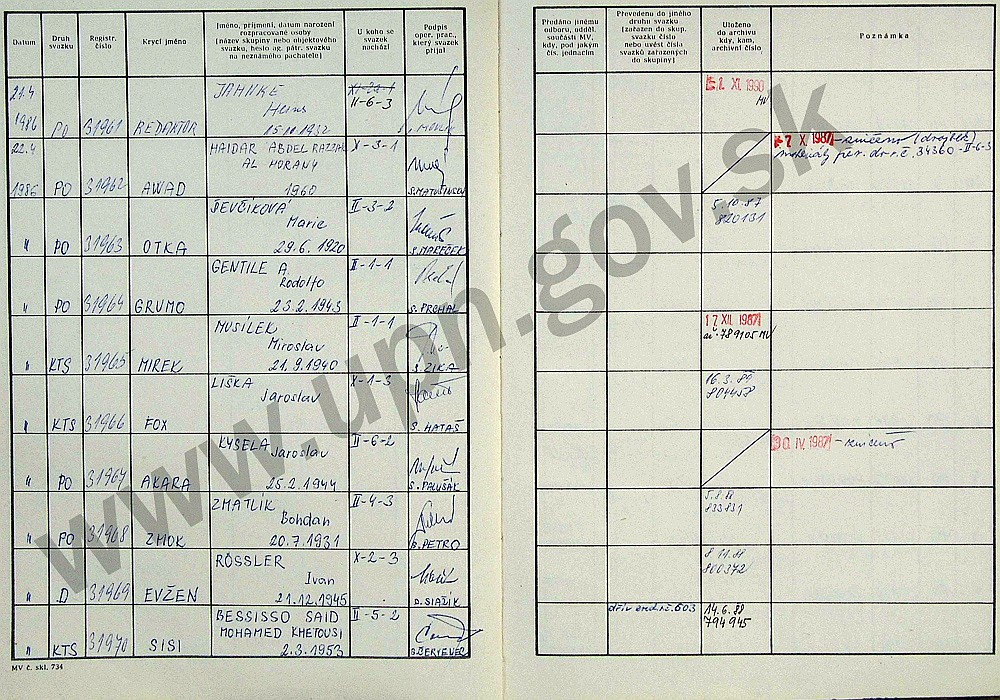 Datum
Druh svazku
Registr. číslo
Krycí jméno
Jméno, příjmení, datum narození rozpracované osoby
[název skupiny nebo objektového svazku, heslo ag. pátr. svazku na neznámého pachatele]
U koho se svazek nachází
Podpis oper. prac., který svazek přijal
Předáno jinému odboru, odděl. součásti MV, kdy, pod jakým čís. jednacím
Převedeno do jiného druhu svazku [zařazen do skup. svazku číslo nebo uvést čísla svazků zařazených do skupiny]
Uloženo do archivu kdy, kam, archivní číslo
Poznámka
21.4 1986 PO 31961 REDAKTOR
JAHNKE
Heins
15.10.1932
II-6-3
2. XI. 1990
MV
22.4 1986 PO 31962 AWAD
HAIDAR ABDEL RAZZAK
AL HORANY
1960
X-3-1
7. X. 1987 - zničeno
materiály
34360 - II-6-3
" PO 31963 OTKA
ŠEVČÍKOVÁ
Marie
29.6.1920
II-3-2
S. MAREČEK
5.10.87
820131
" PO 31964 GRUMO
GENTILE A.
Rodolfo
23.2.1943
II-1-1
S. PRCHAL
" KTS 31965 MIREK
MUSÍLEK
Miroslav
21.9.1940
II-1-1
S. ZIKA
17. XII. 1987
789105 MV
" KTS 31966 FOX
LIŠKA
Jaroslav
X-1-3
S. HATAŠ
16.3.89
804458
" PO 31967 AKARA
KYSELA
Jaroslav
25.2.1944
II-6-2
S. PALUŠÁK
30. IV. 1987 - zničeno
" PO 31968 ZMOK
ZMATLÍK
Bohdan
20.7.1931
II-4-3
S. PETRO
5.8.88
833831
" D 31969 EVŽEN
RÖSSLER
Ivan
21.12.1945
X-2-3
8.11.88
800372
" KTS 31970 SISI
BESSISSO SAID
MOHAMED KHETOUSI
2.3.1953
II-5-2
S. ČERVENEC
14.6.88
794945
MV č. skl. 734
www.upn.gov.sk